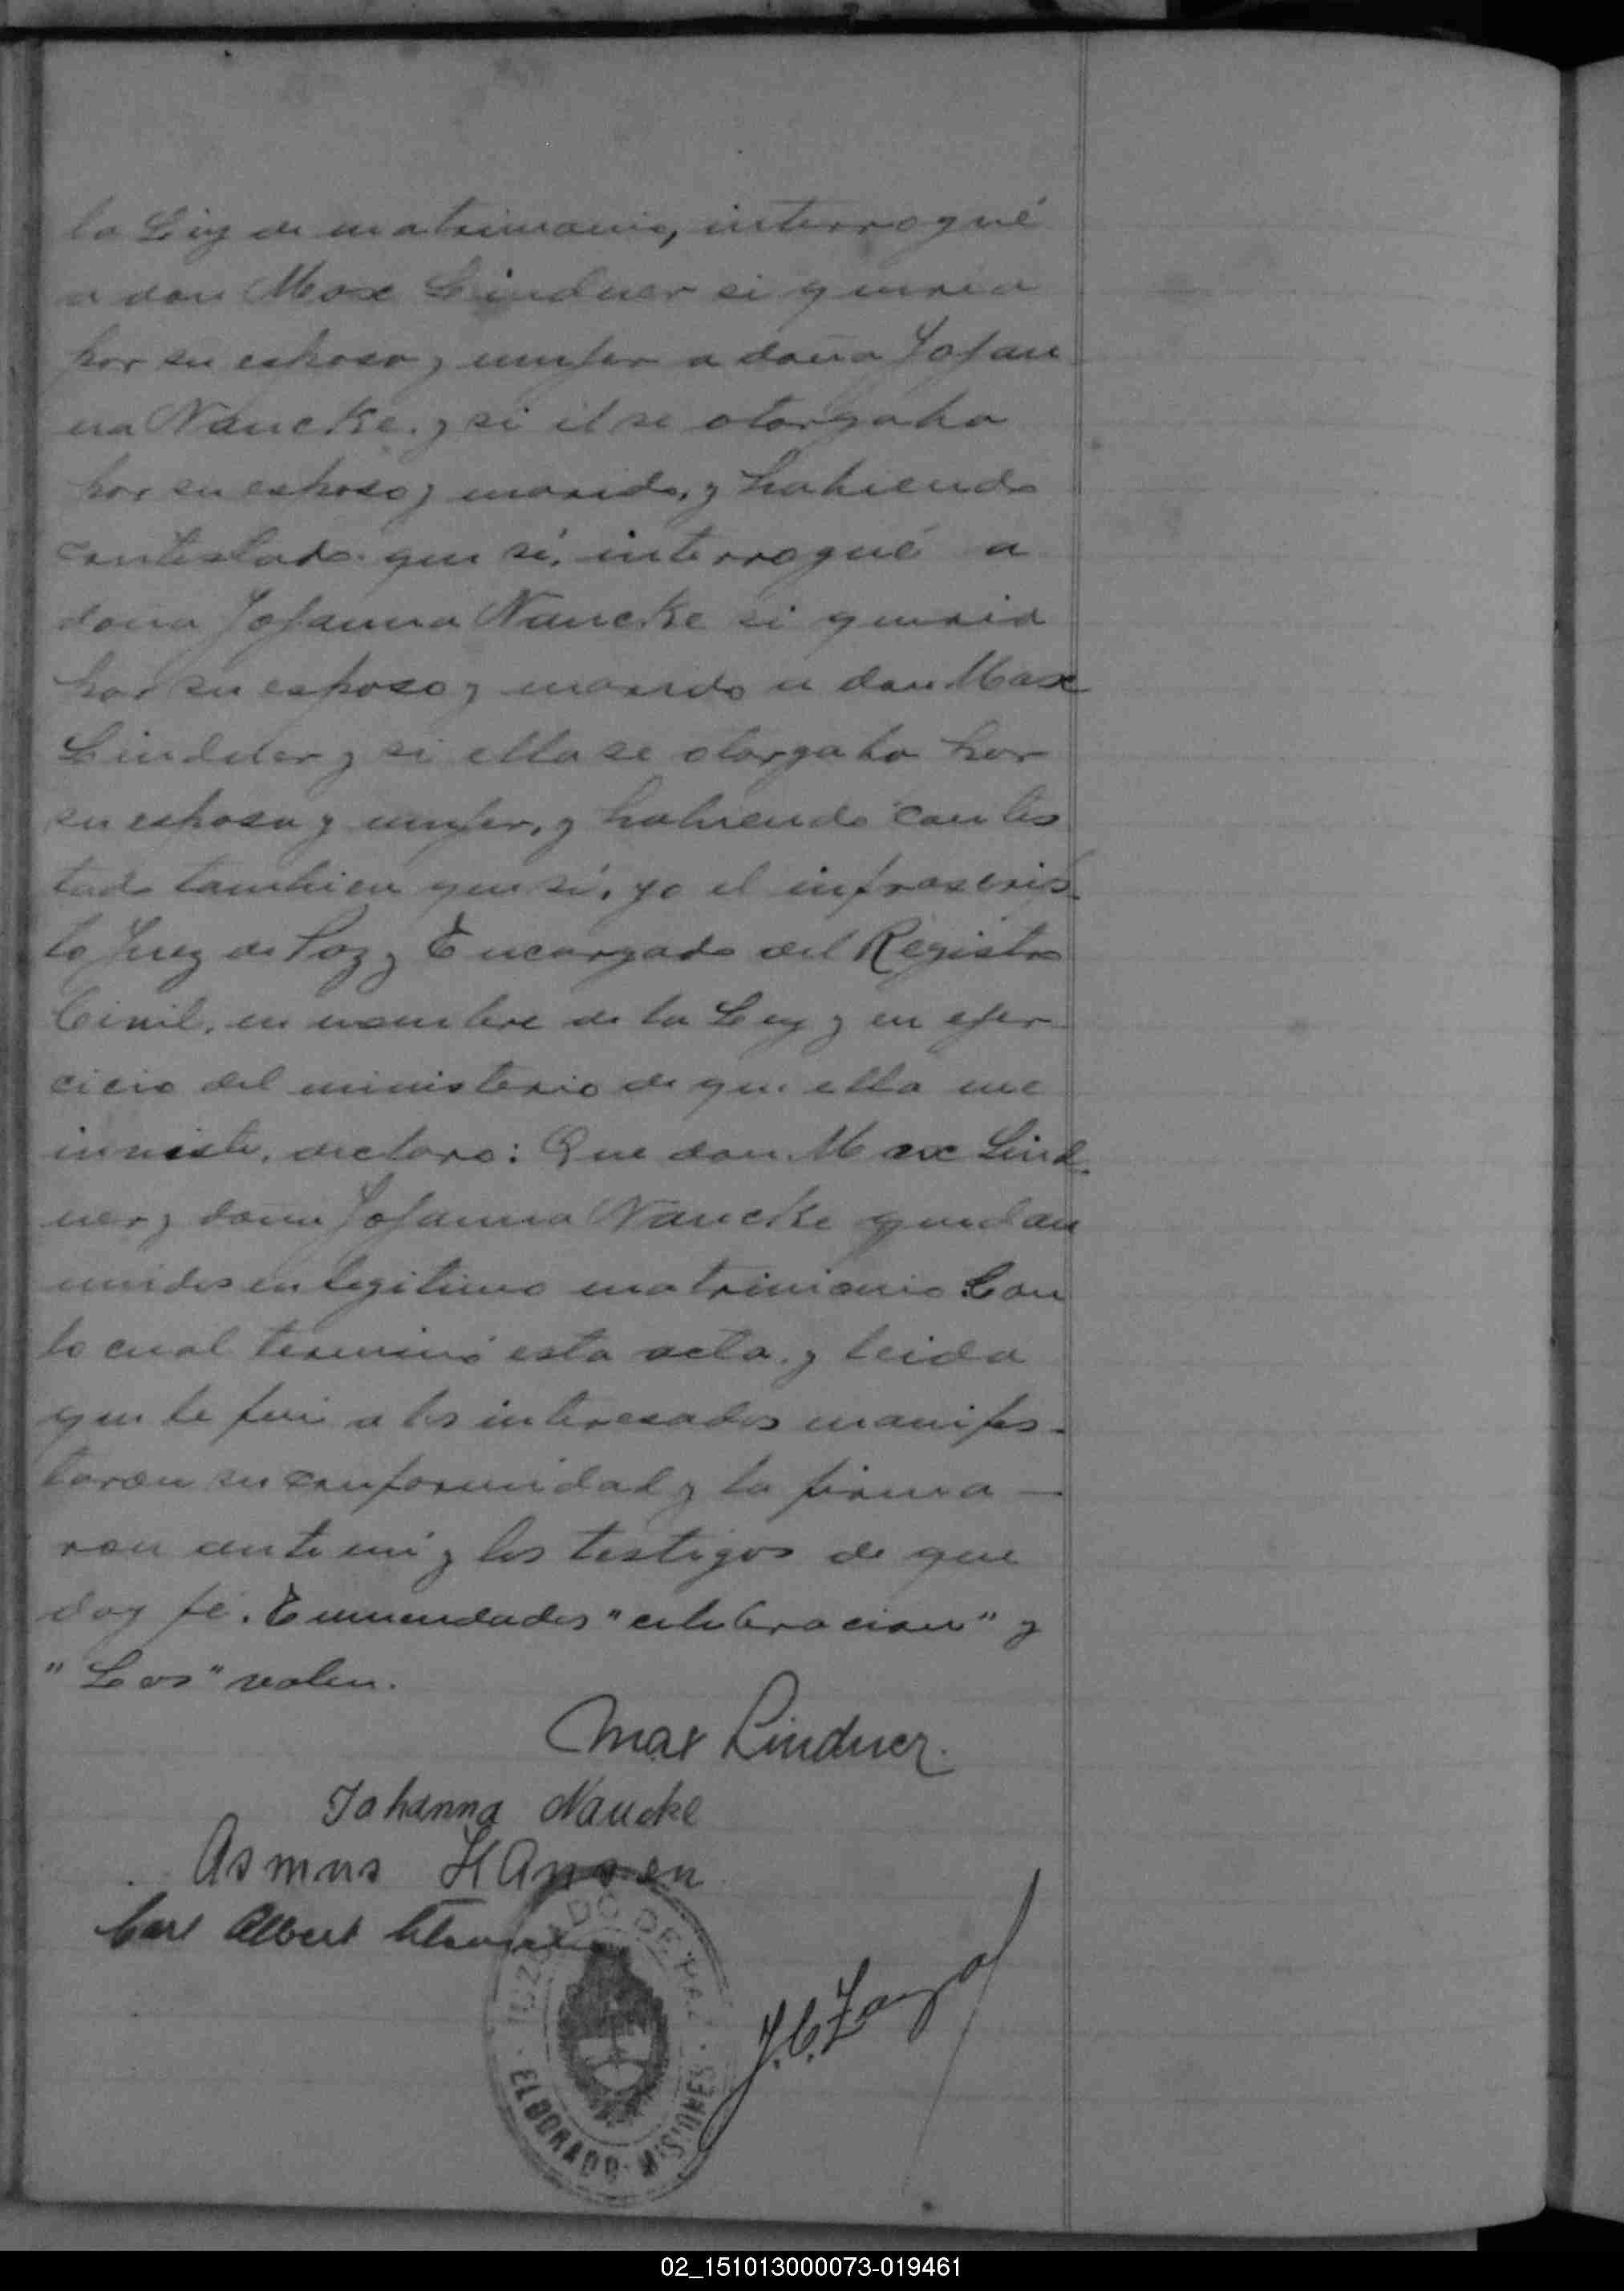 la Ley de matrimonio, interrogué
a don Max Lindner si queria
por su esposa y mujer a doña Johan
na Naucke, y si el se otorgaba
por su esposo y marido, y habiendo
contestado que si, interrogué a
doña Johanna Naucke si queria
por su esposo y marido a don Max
Lindner y si ella se otorgaba por
su esposa y mujer, y habiendo contes
tado tambien que si, yo el infrascrip-
to Juez de Paz y Encargado del Registro
Civil, en nombre de la Ley y en ejer-
cicio del ministerio de que ella me
inviste, declaro: Que don Max Lind-
ner y doña Johanna Naucke quedan
unidos en legitimo matrimonio Con
lo cual terminó esta acta, y leida
que le fue a los interesados manifes-
taron su conformidad y la firma-
ron ante mi y los testigos de que
doy fé. Enmendados "celebracion" y
"Los" valen.
Max Lindner.
Johanna Naucke
Asmus Hansen
Carl Albert
JUZGADO DE PAZ
J. C.
EL DORADO - MISIONES
02_151013000073-019461